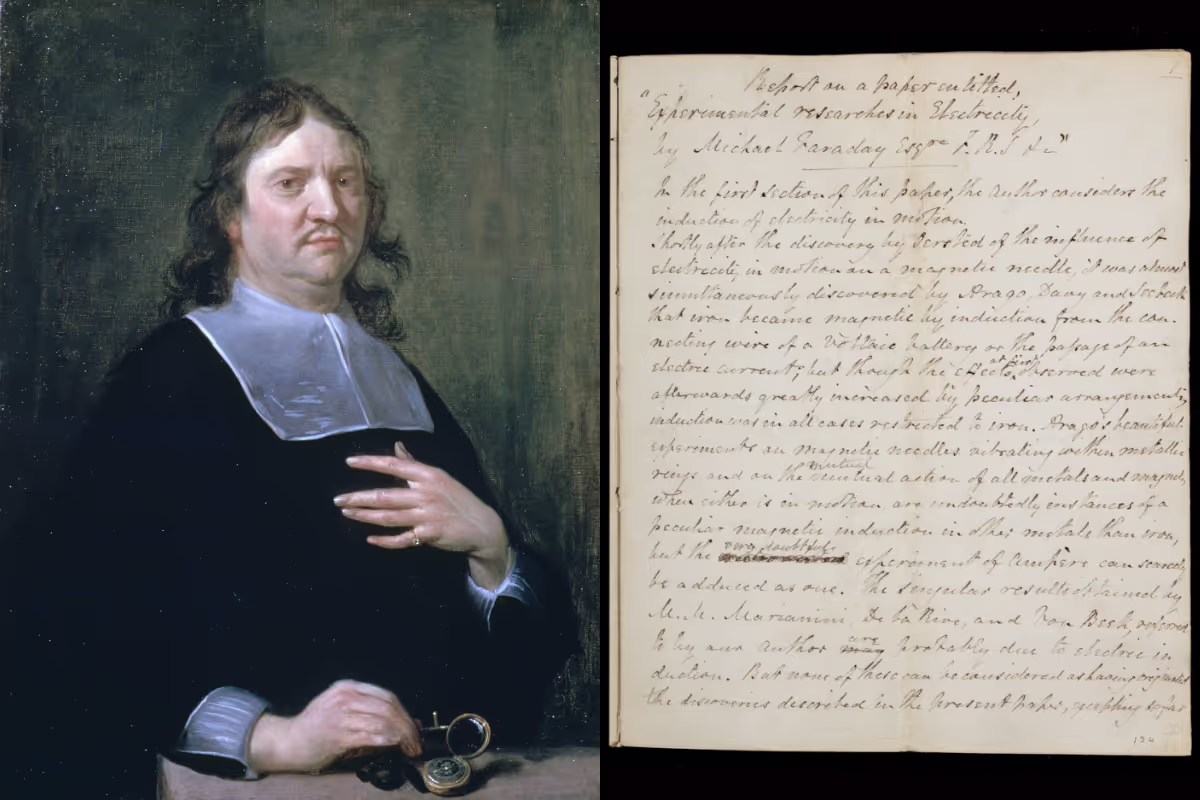 1
Report on a paper entitled,
"Experimental researches in Electricity,
by Michael Faraday Esqre F.R.S &c"
In the first section of this paper, the author considers the
induction of electricity in motion.
Shortly after the discovery by Oersted of the influence of
electricity in motion on a magnetic needle, it was almost
simultaneously discovered by Arago, Davy and Seebeck
that iron became magnetic by induction from the con-
necting wire of a Voltaic battery or the passage of an
electric current; but though the effects at first observed were
afterwards greatly increased by peculiar arrangements,
induction was in all cases restricted to iron. Arago's beautiful
experiments on magnetic needles vibrating within metallic
rings and on the mutual action of all metals and magnets,
when either is in motion, are undoubtedly instances of a
peculiar magnetic induction in other metals than iron,
but the very doubtful experiment of Ampère can scarcely
be adduced as one. The singular results obtained by
M.M. Marianini, De la Rive, and Von Beek, referred
to by our author may are probably due to electric in
duction. But none of these can be considered as having originated
the discoveries described in the present paper, excepting so far
124